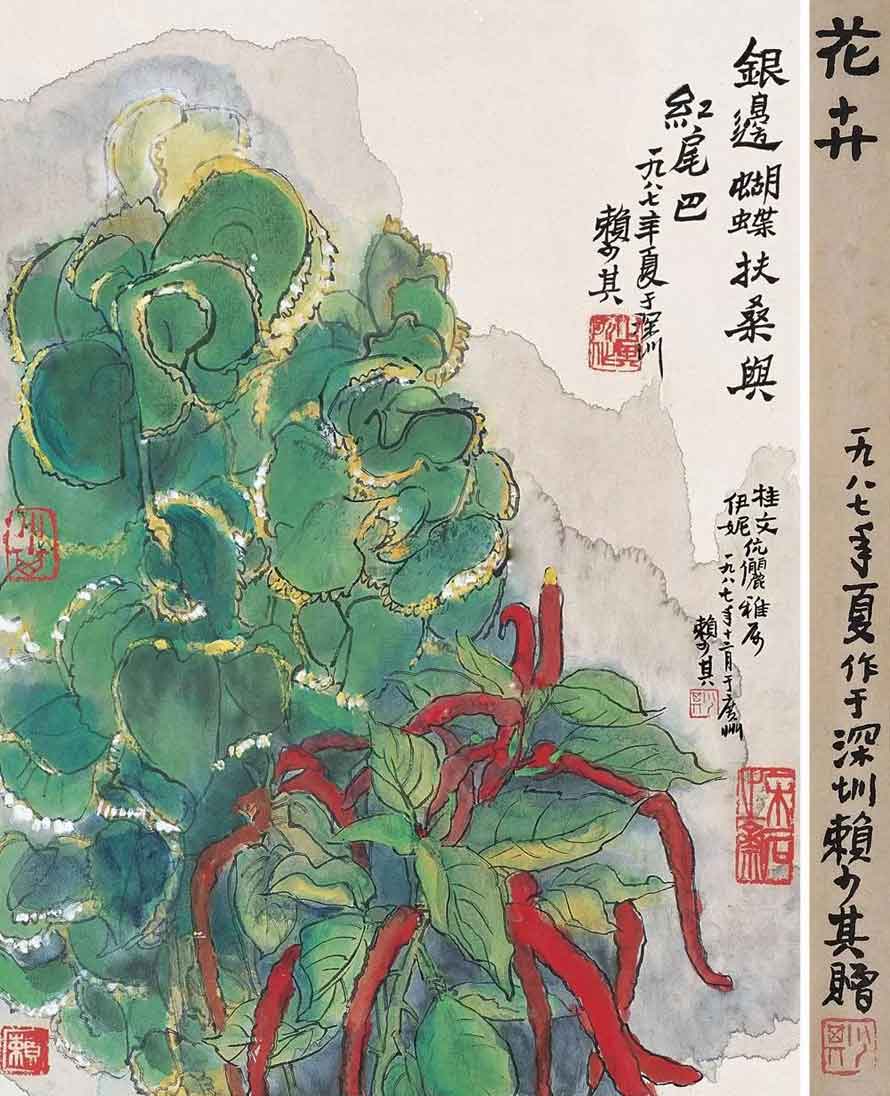 花卉
一九八七年夏作于深圳賴少其贈
銀邊蝴蝶扶桑與
紅尾巴
一九八七年夏于深圳
賴少其
桂文
伊妮
伉儷雅属
一九八七年十二月于廣州
賴少其
賴